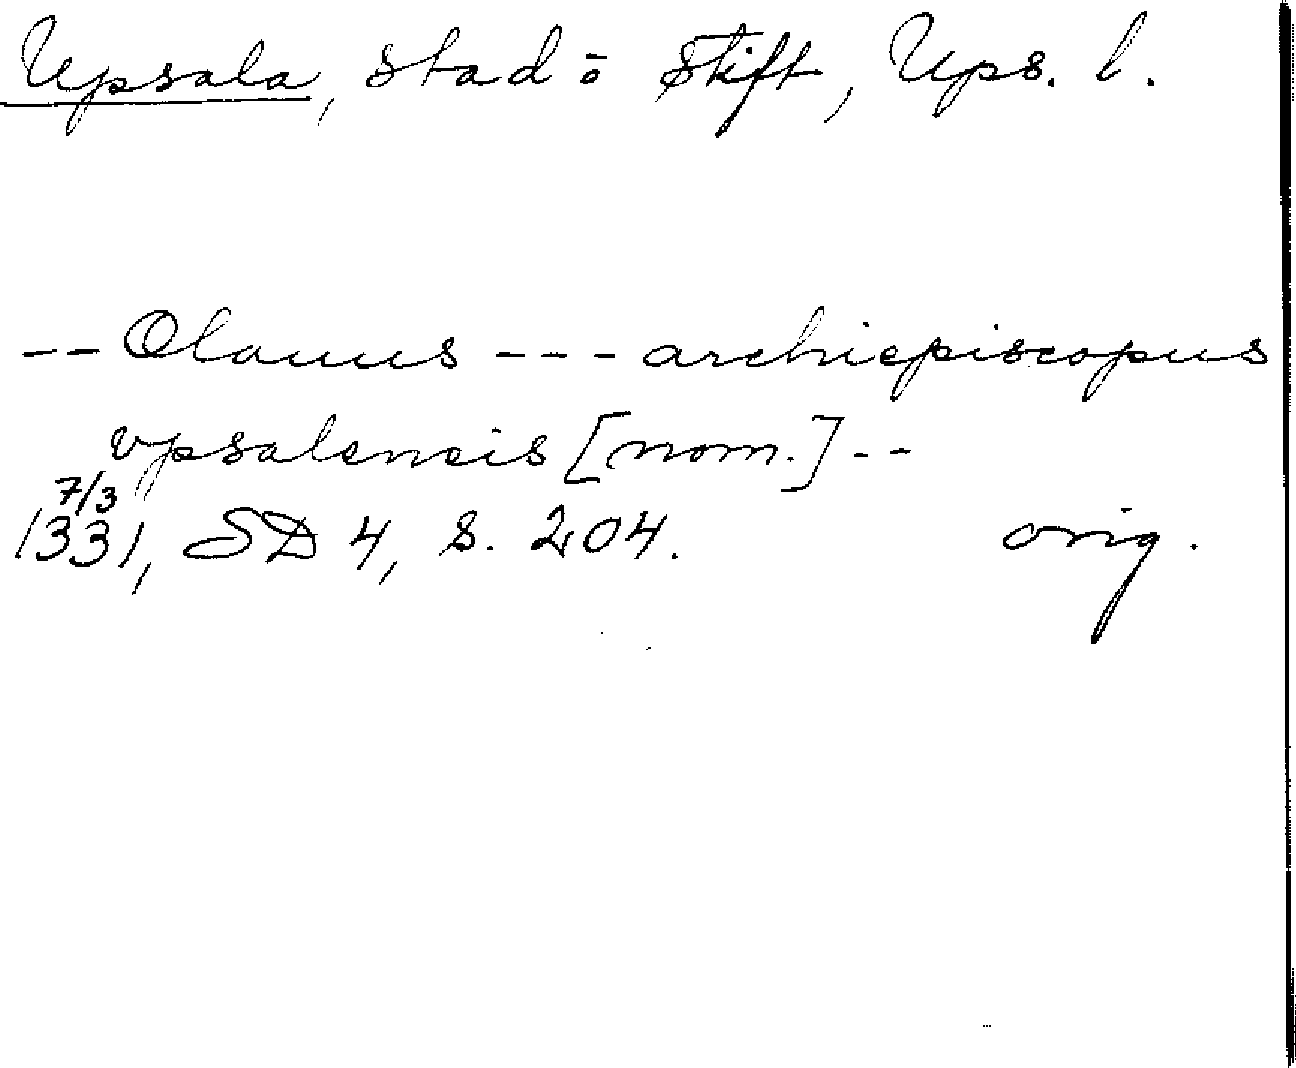 Upsala, stad o. stift, Ups. l.
-- Olauus --- archiepiscopus
vpsalensis [nom.] --
7/3
1331, SD 4, s. 204. orig.